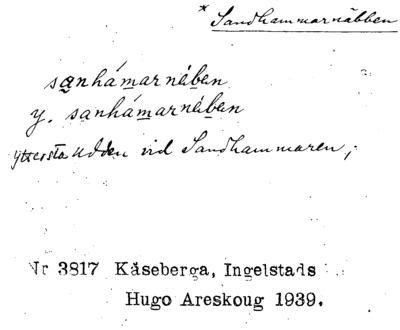 * Sandhammarnäbben
sanhámarnében
y. sanhámarnében
ytterста udden vid Sandhammaren;
Nr 3817 Kåseberga, Ingelstads
Hugo Areskoug 1939.